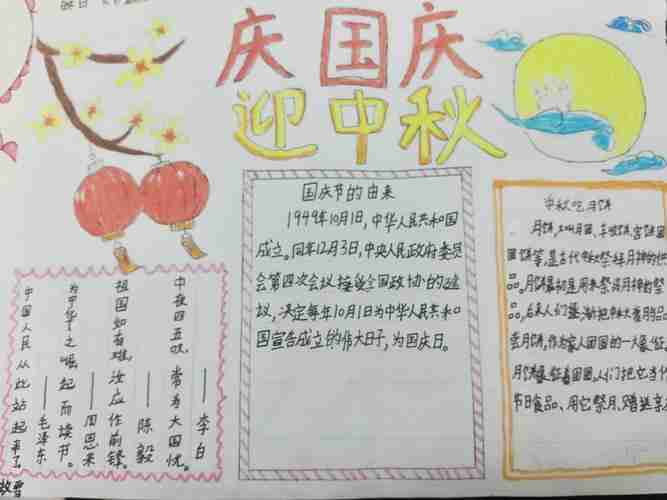 庆国庆
迎中秋
国庆节的由来
1949年10月1日,中华人民共和国
成立。同年12月3日,中央人民政府委员
会第四次会议接受全国政协的建
议,决定每年10月1日为中华人民共和
国宣告成立的伟大日子,为国庆日。
中秋吃月饼
月饼,又叫月团、丰收饼、宫饼、团
圆饼等,是古代中秋祭拜月神的供
品。月饼最初是用来祭拜月神的祭
品。后来人们逐渐把中秋赏月与品
尝月饼,作为家人团圆的一大象征。
月饼象征着团圆。人们把它当作
节日食品、用它祭月、赠送亲
中夜四五叹,常为大国忧。
——李白
祖国如有难,汝应作前锋。
——陈毅
为中华之崛起而读书。
——周恩来
中国人民从此站起来了
——毛泽东